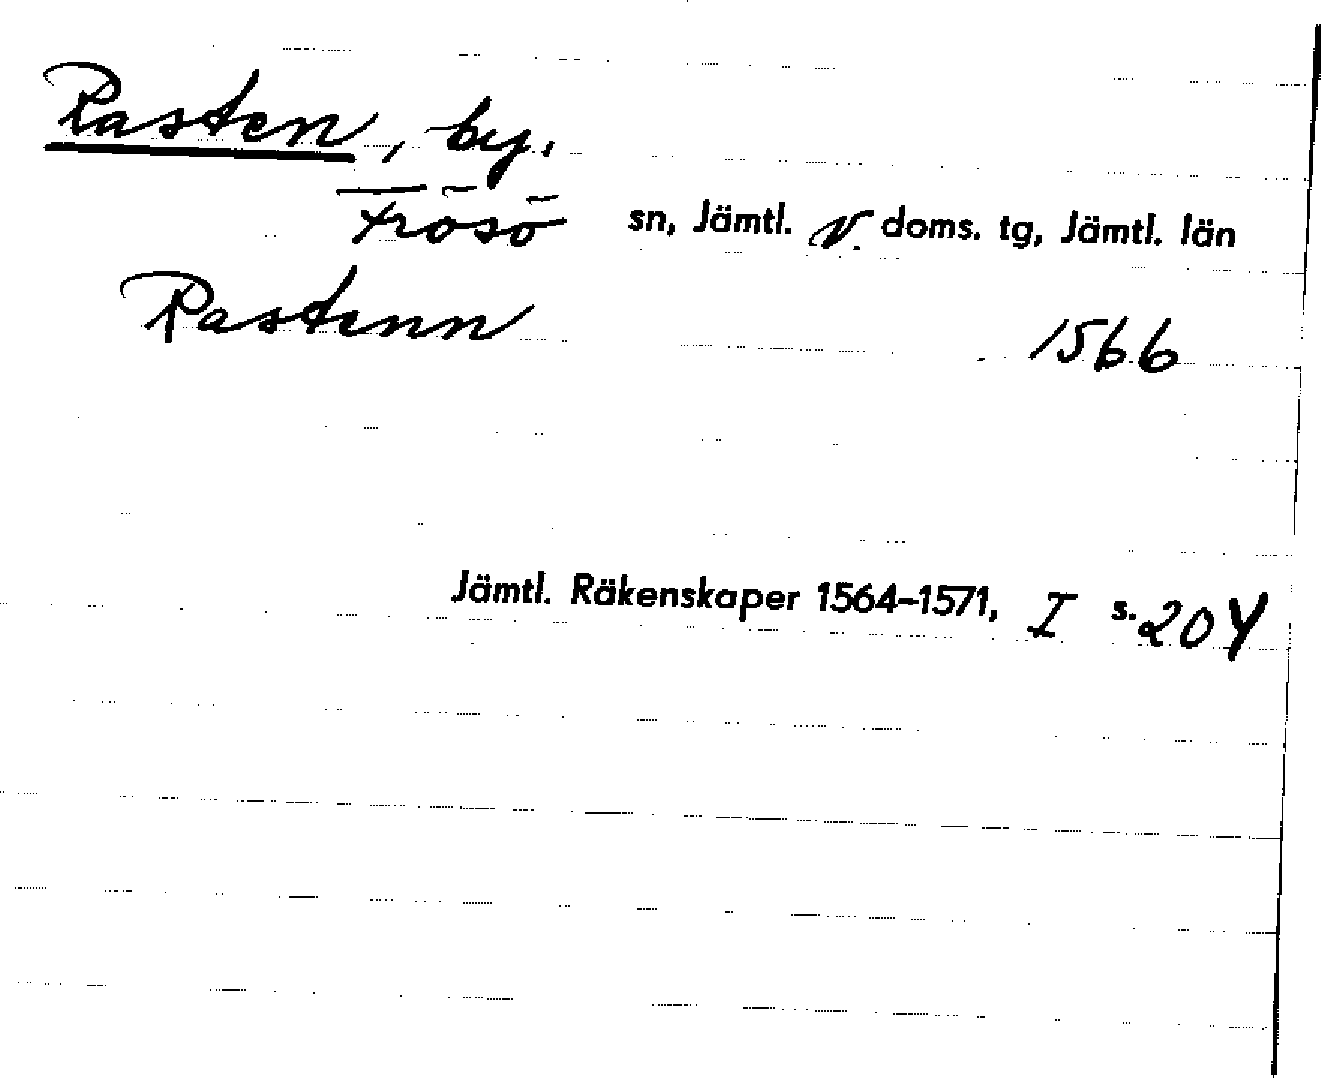 Rasten, by.
Frösö sn, Jämtl. v. doms. tg, Jämtl. län
Rastenn 1566
Jämtl. Räkenskaper 1564–1571, I s. 204